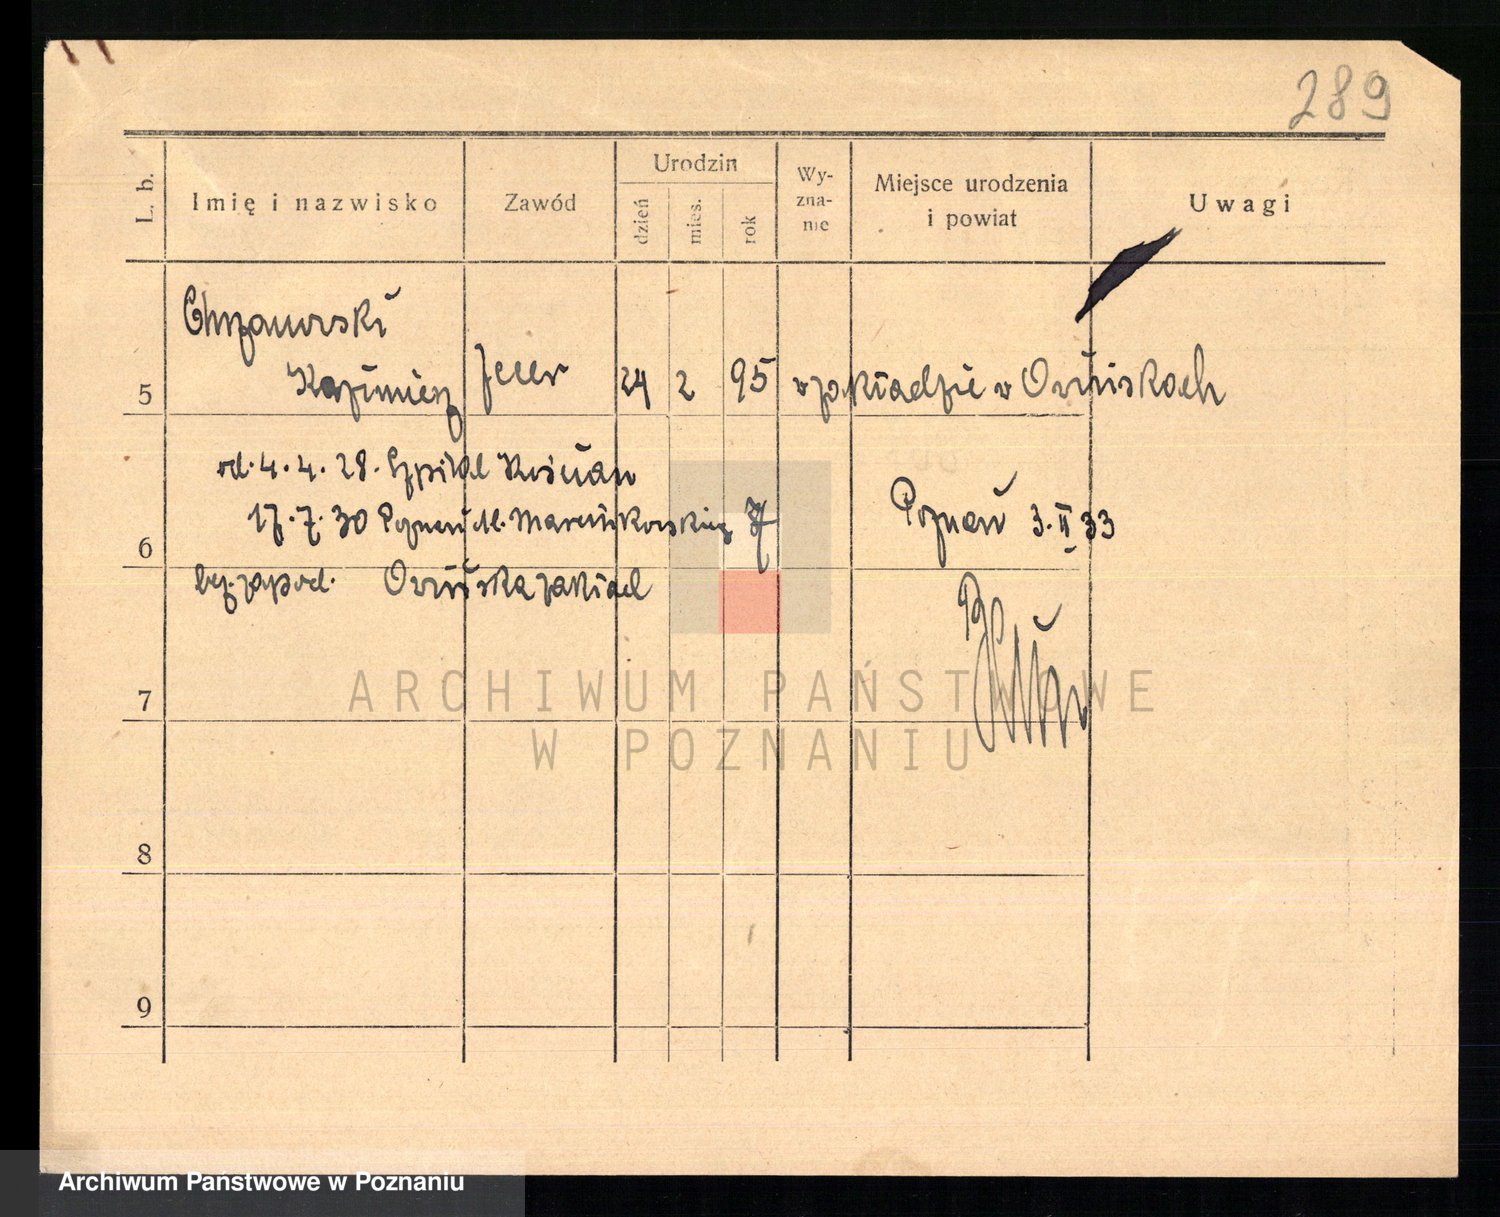 289
L. b.
Imię i nazwisko
Zawód
Urodzin
dzień
mies.
rok
Wy-
zna-
nie
Miejsce urodzenia
i powiat
Uwagi
Chrzanowski
5 Kazimierz 24 2 95 w zakładzie w Owińskach
od. 4. 4. 28. Szpital Kościan
17. 7. 30 Poznań Marcinkowskiego
Poznań 3. II 33
6
Owińska zakład
7
8
9
ARCHIWUM PAŃSTWOWE
W POZNANIU
Archiwum Państwowe w Poznaniu